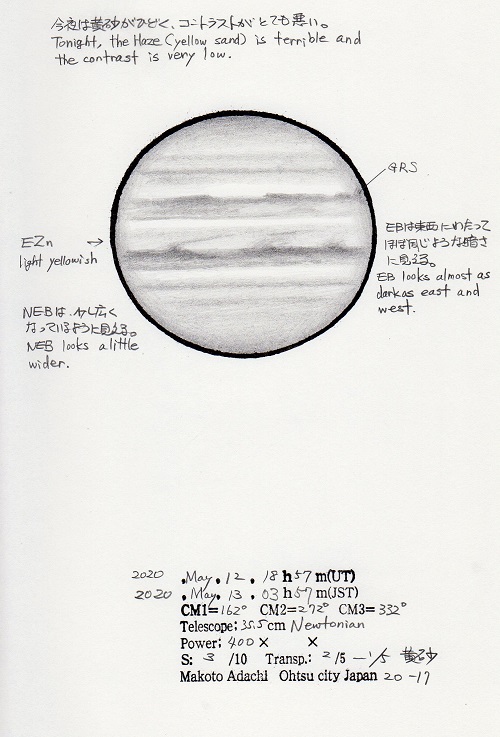 今夜は黄砂がひどく、コントラストがとても悪い。
Tonight, the Haze (yellow sand) is terrible and
the contrast is very low.
GRS
EZn →
light yellowish
EBは東西にわたって
ほぼ同じような暗さ
に見える。
EB looks almost as
dark as east and
west.
NEBは、少し広く
なっているように見える。
NEB looks a little
wider.
2020 . May . 12 . 18 h 57 m(UT)
2020 . May . 13 . 03 h 57 m(JST)
CM1=162° CM2=272° CM3=332°
Telescope; 35.5cm Newtonian
Power; 400 × ×
S: 3 /10 Transp.: 2/5 – 1/5 黄砂
Makoto Adachi Ohtsu city Japan 20-17